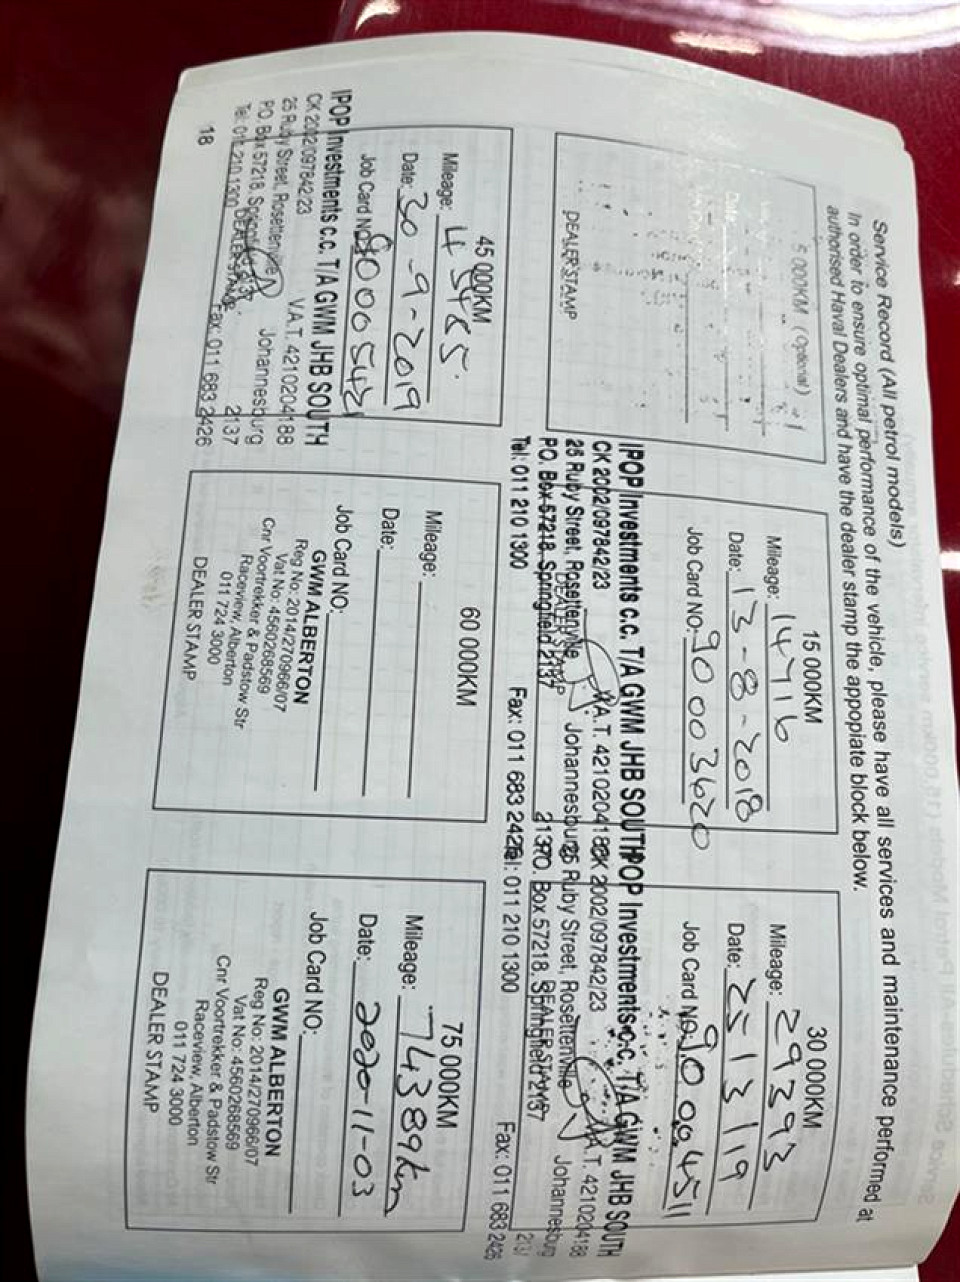 Service Record (All petrol models)
In order to ensure optimal performance of the vehicle, please have all services and maintenance performed at
authorised Haval Dealers and have the dealer stamp the appopiate block below.
5 000KM (Optional)
DEALER STAMP
15 000KM
Mileage: 14716
Date: 13-8-2018
Job Card NO: 90003620
IPOP Investments c.c. T/A GWM JHB SOUTH
CK 2002/097842/23 V.A.T. 4210204188
25 Ruby Street, Rosettenville Johannesburg
P.O. Box 57218, Springfield 2137 2137
Tel: 011 210 1300 Fax: 011 683 2426
DEALER STAMP
30 000KM
Mileage: 29393
Date: 25/3/19
Job Card NO: 90004511
IPOP Investments c.c. T/A GWM JHB SOUTH
CK 2002/097842/23 V.A.T. 4210204188
25 Ruby Street, Rosettenville Johannesburg
P.O. Box 57218, Springfield 2137 2137
Tel: 011 210 1300 Fax: 011 683 2426
DEALER STAMP
45 000KM
Mileage: 45485
Date: 30-9-2019
Job Card NO:
IPOP Investments c.c. T/A GWM JHB SOUTH
CK 2002/097842/23 V.A.T. 4210204188
25 Ruby Street, Rosettenville Johannesburg
P.O. Box 57218, Springfield 2137 2137
Tel: 011 210 1300 Fax: 011 683 2426
DEALER STAMP
60 000KM
Mileage:
Date:
Job Card NO:
GWM ALBERTON
Reg No: 2014/270966/07
Vat No: 4560268569
Cnr Voortrekker & Padstow Str
Raceview, Alberton
011 724 3000
DEALER STAMP
75 000KM
Mileage: 74389km
Date: 2020-11-03
Job Card NO:
GWM ALBERTON
Reg No: 2014/270966/07
Vat No: 4560268569
Cnr Voortrekker & Padstow Str
Raceview, Alberton
011 724 3000
DEALER STAMP
18